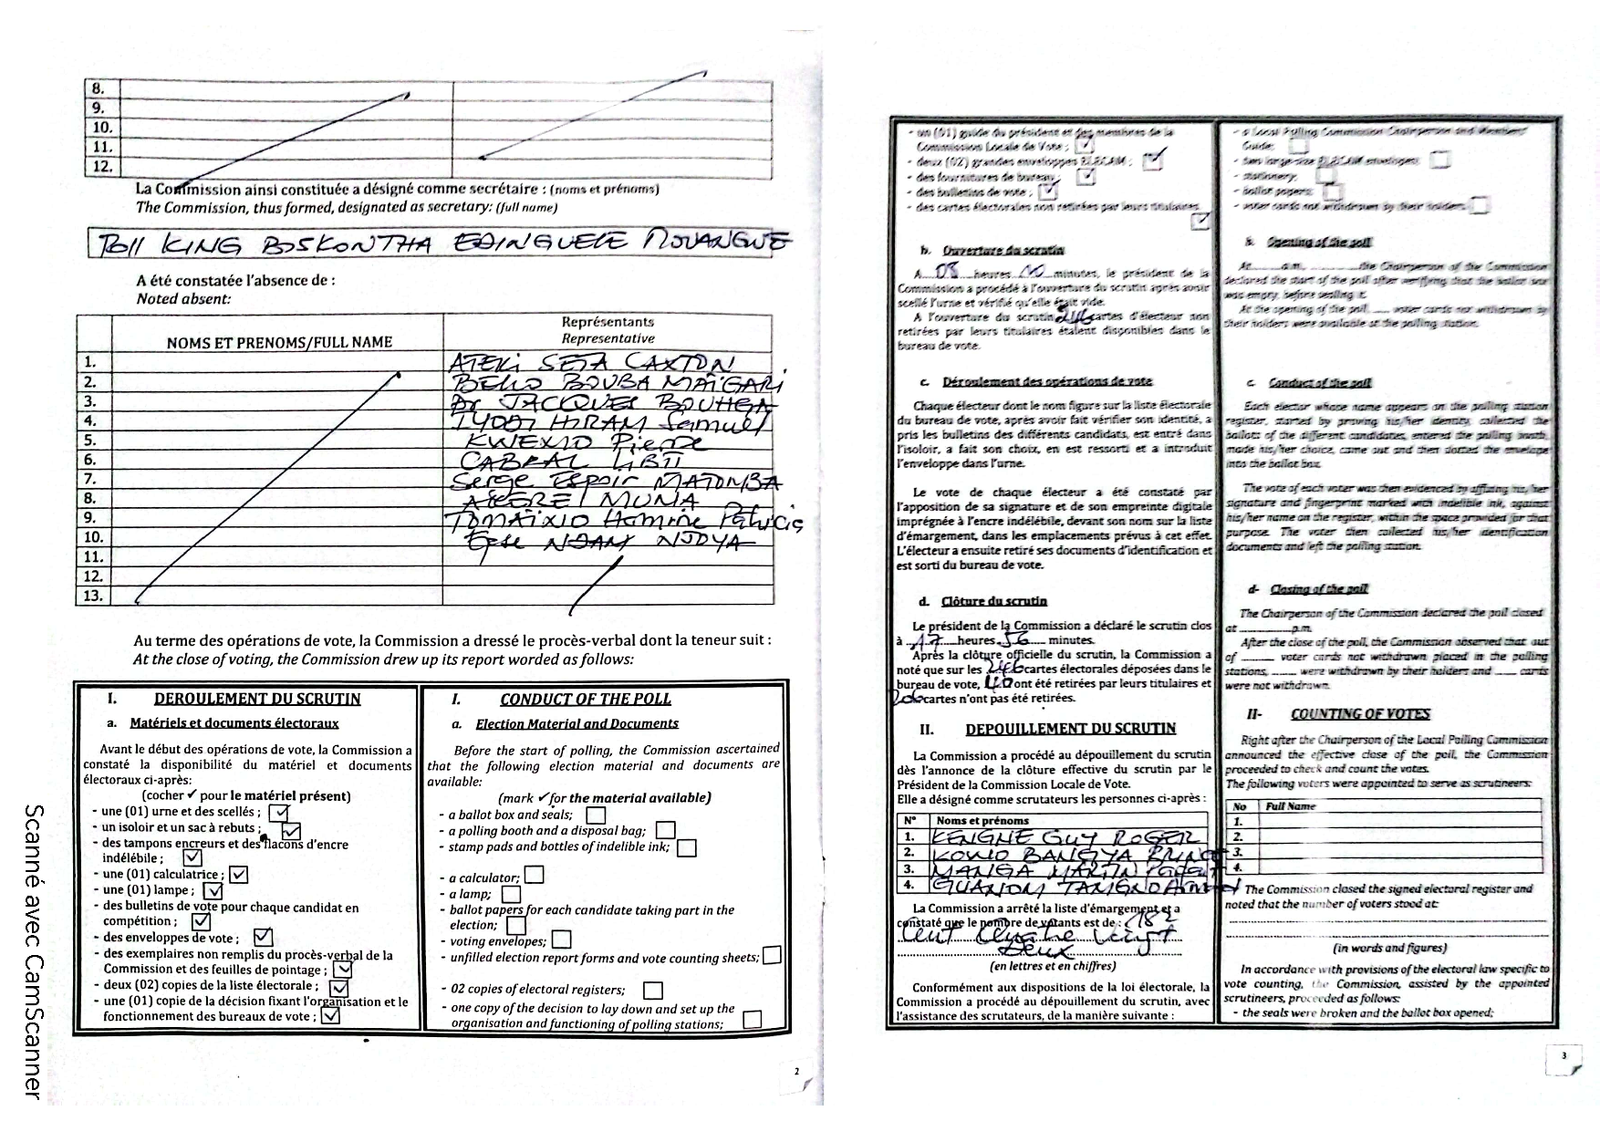 8.
9.
10.
11.
12.
La Commission ainsi constituée a désigné comme secrétaire : (noms et prénoms)
The Commission, thus formed, designated as secretary: (full name)
KING BOSKONTHA EDINGUELE
A été constatée l'absence de :
Noted absent:
NOMS ET PRENOMS/FULL NAME
Représentants
Representative
1. ATEKI SETA CAXTON
2. BELLO BOUBA MAÏGARI
3. Dr JACQUES BOUHGA
4. IYODI HIRAM Samuel
5. KWEMO Pierre
6. CABRAL LIBII
7. Serge Espoir MATOMBA
8. AKERE MUNA
9. TOMAÏNO Hermine Patricia
10. NJOYA
11.
12.
13.
Au terme des opérations de vote, la Commission a dressé le procès-verbal dont la teneur suit :
At the close of voting, the Commission drew up its report worded as follows:
I. DEROULEMENT DU SCRUTIN
a. Matériels et documents électoraux
Avant le début des opérations de vote, la Commission a
constaté la disponibilité du matériel et documents
électoraux ci-après:
(cocher ✓ pour le matériel présent)
- une (01) urne et des scellés ; ☑
- un isoloir et un sac à rebuts ; ☑
- des tampons encreurs et des flacons d'encre
indélébile ; ☑
- une (01) calculatrice ; ☑
- une (01) lampe ; ☑
- des bulletins de vote pour chaque candidat en
compétition ; ☑
- des enveloppes de vote ; ☑
- des exemplaires non remplis du procès-verbal de la
Commission et des feuilles de pointage ; ☑
- deux (02) copies de la liste électorale ; ☑
- une (01) copie de la décision fixant l'organisation et le
fonctionnement des bureaux de vote ; ☑
I. CONDUCT OF THE POLL
a. Election Material and Documents
Before the start of polling, the Commission ascertained
that the following election material and documents are
available:
(mark ✓ for the material available)
- a ballot box and seals; ☐
- a polling booth and a disposal bag; ☐
- stamp pads and bottles of indelible ink; ☐
- a calculator; ☐
- a lamp; ☐
- ballot papers for each candidate taking part in the
election; ☐
- voting envelopes; ☐
- unfilled election report forms and vote counting sheets; ☐
- 02 copies of electoral registers; ☐
- one copy of the decision to lay down and set up the
organisation and functioning of polling stations; ☐
2
Scanné avec CamScanner
- un (01) guide du président et des membres de la
Commission Locale de Vote ; ☑
- deux (02) grandes enveloppes ELECAM ; ☑
- des fournitures de bureau ; ☑
- des bulletins de vote ; ☑
- des cartes électorales non retirées par leurs titulaires
☑
b. Ouverture du scrutin
A 08 heures 00 minutes, le président de la
Commission a procédé à l'ouverture du scrutin après avoir
scellé l'urne et vérifié qu'elle était vide.
A l'ouverture du scrutin 246 cartes d'électeur non
retirées par leurs titulaires étaient disponibles dans le
bureau de vote.
c. Déroulement des opérations de vote
Chaque électeur dont le nom figure sur la liste électorale
du bureau de vote, après avoir fait vérifier son identité, a
pris les bulletins des différents candidats, est entré dans
l'isoloir, a fait son choix, en est ressorti et a introduit
l'enveloppe dans l'urne.
Le vote de chaque électeur a été constaté par
l'apposition de sa signature et de son empreinte digitale
imprégnée à l'encre indélébile, devant son nom sur la liste
d'émargement, dans les emplacements prévus à cet effet.
L'électeur a ensuite retiré ses documents d'identification et
est sorti du bureau de vote.
d. Clôture du scrutin
Le président de la Commission a déclaré le scrutin clos
à 17 heures 56 minutes.
Après la clôture officielle du scrutin, la Commission a
noté que sur les 246 cartes électorales déposées dans le
bureau de vote, 40 ont été retirées par leurs titulaires et
206 cartes n'ont pas été retirées.
II. DEPOUILLEMENT DU SCRUTIN
La Commission a procédé au dépouillement du scrutin
dès l'annonce de la clôture effective du scrutin par le
Président de la Commission Locale de Vote.
Elle a désigné comme scrutateurs les personnes ci-après :
N° Noms et prénoms
1. KENGNE GUY ROGER
2. KOUO BANGYA PRINCE
3. MANGA MARTIN
4. GUANOM TAMGNO
La Commission a arrêté la liste d'émargement et a
constaté que le nombre de votants est de : 182
Cent Quatre Vingt
Deux
(en lettres et en chiffres)
Conformément aux dispositions de la loi électorale, la
Commission a procédé au dépouillement du scrutin, avec
l'assistance des scrutateurs, de la manière suivante :
- a Local Polling Commission Chairperson and Members'
Guide; ☐
- two large-size ELECAM envelopes; ☐
- stationery; ☐
- ballot papers; ☐
- voter cards not withdrawn by their holders; ☐
b. Opening of the poll
At........a.m, ............the Chairperson of the Commission
declared the start of the poll after verifying that the ballot box
was empty, before sealing it.
At the opening of the poll, ..... voter cards not withdrawn by
their holders were available at the polling station.
c. Conduct of the poll
Each elector whose name appears on the polling station
register, started by proving his/her identity, collected the
ballots of the different candidates, entered the polling booth,
made his/her choice, came out and then slotted the envelope
into the ballot box.
The vote of each voter was then evidenced by affixing his/her
signature and fingerprint marked with indelible ink, against
his/her name on the register, within the space provided for that
purpose. The voter then collected his/her identification
documents and left the polling station.
d- Closing of the poll
The Chairperson of the Commission declared the poll closed
at ..............p.m.
After the close of the poll, the Commission observed that out
of ........ voter cards not withdrawn placed in the polling
stations, ...... were withdrawn by their holders and ...... cards
were not withdrawn.
II- COUNTING OF VOTES
Right after the Chairperson of the Local Polling Commission
announced the effective close of the poll, the Commission
proceeded to check and count the votes.
The following voters were appointed to serve as scrutineers:
No Full Name
1.
2.
3.
4.
The Commission closed the signed electoral register and
noted that the number of voters stood at:
(in words and figures)
In accordance with provisions of the electoral law specific to
vote counting, the Commission, assisted by the appointed
scrutineers, proceeded as follows:
- the seals were broken and the ballot box opened;
3